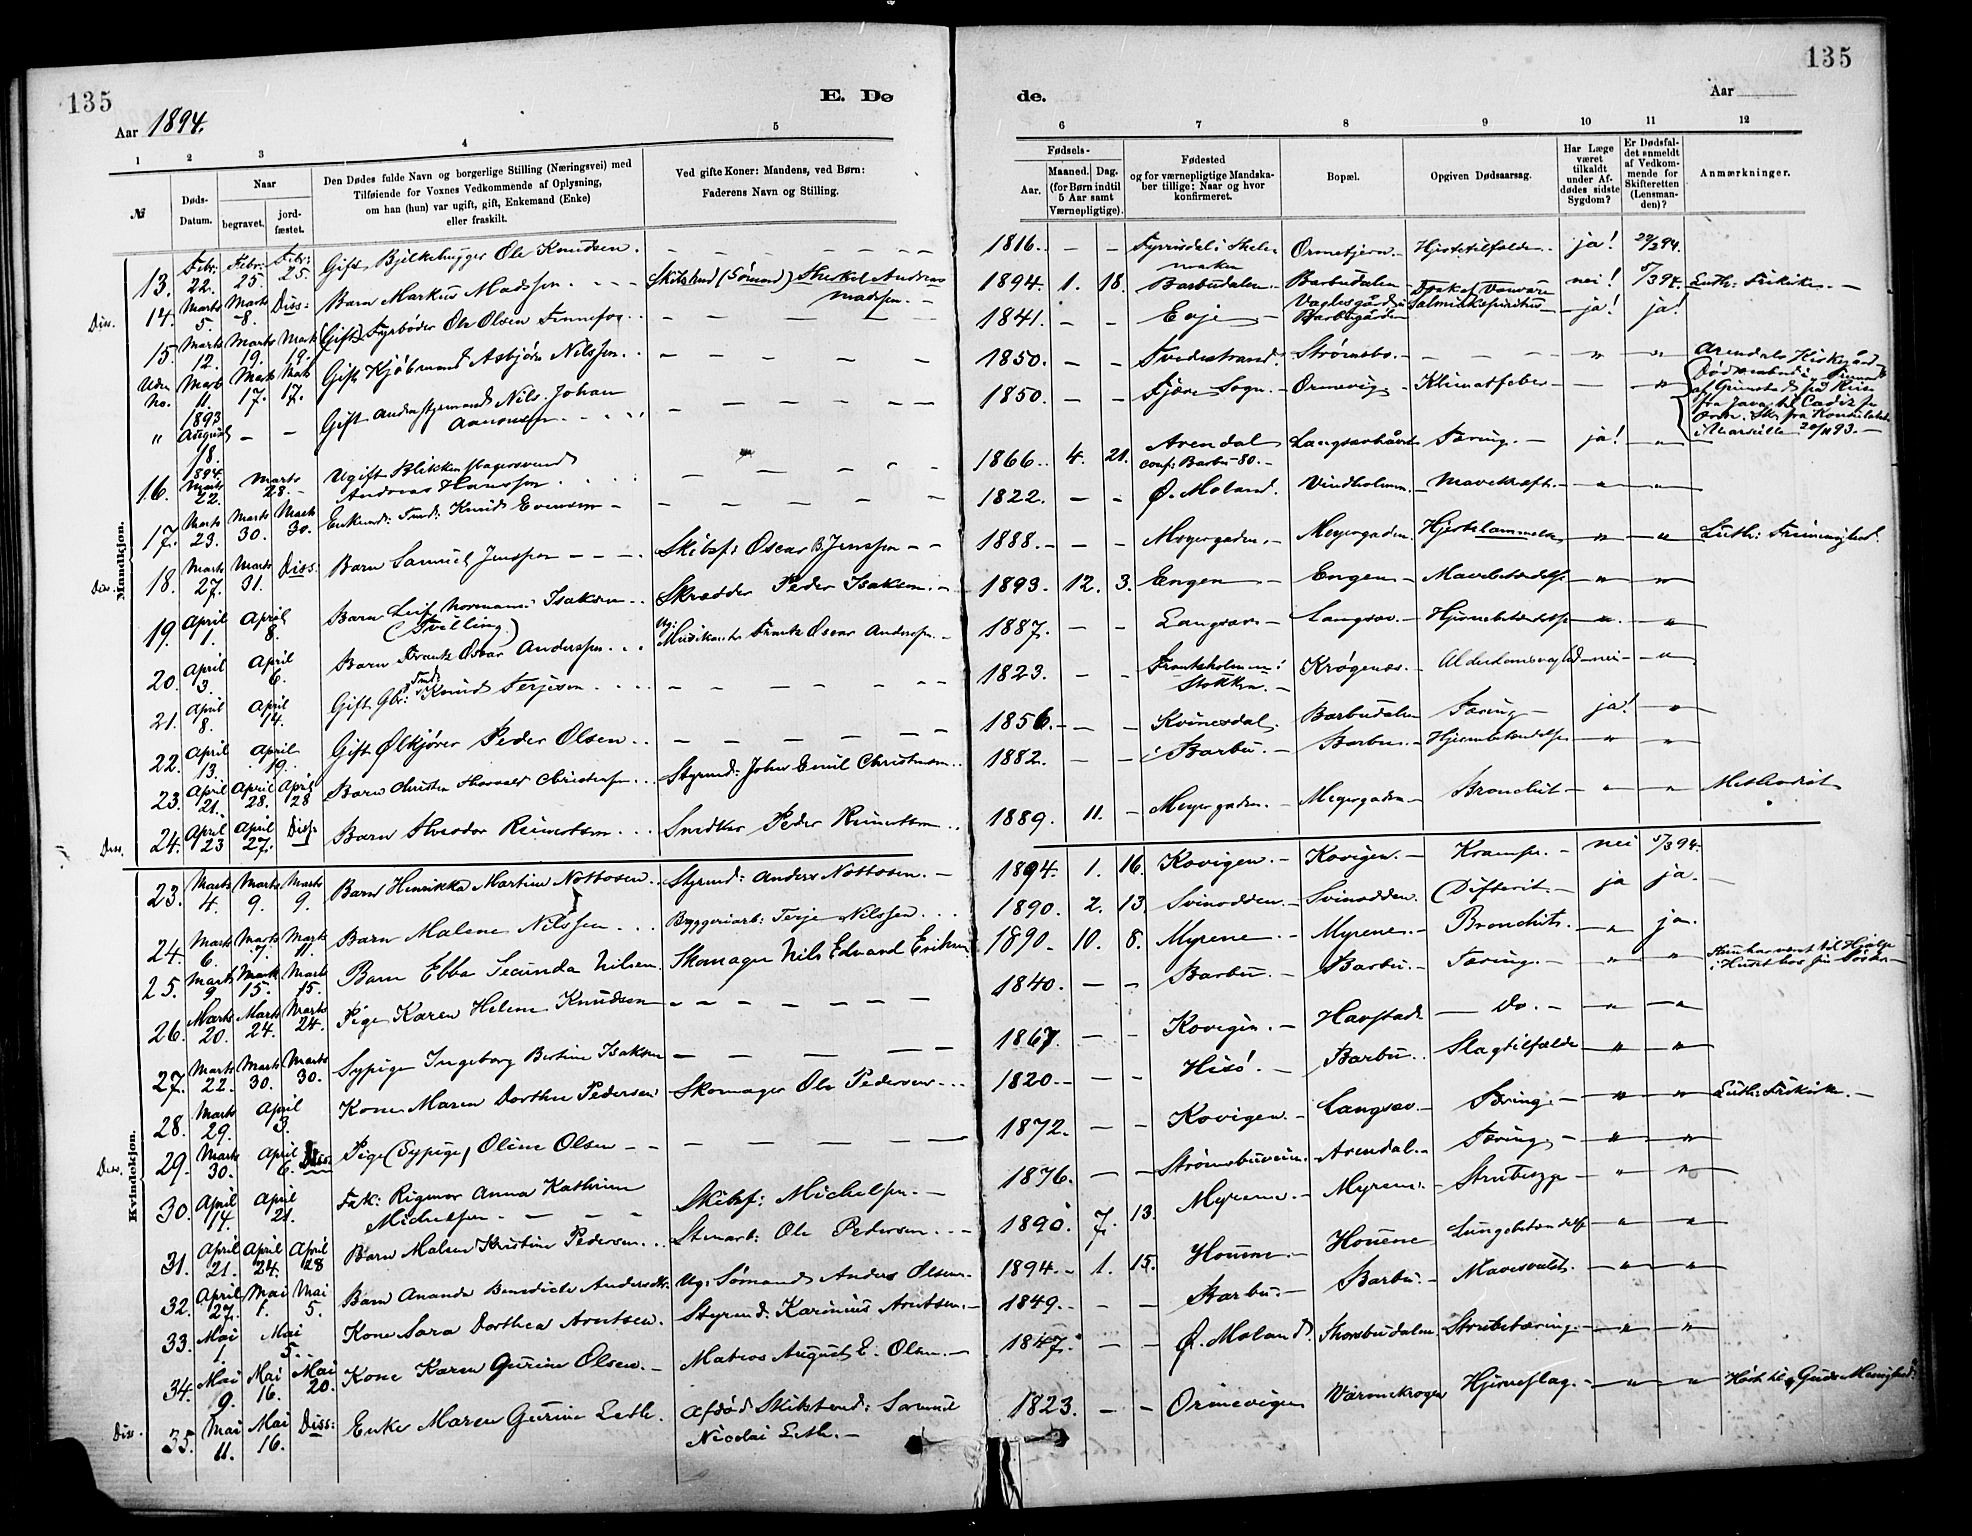 135
E. Dø
de.
135
Aar 1894.
Aar
1 2 3 4 5 6 7 8 9 10 11 12
№
Døds-Datum.
Naar
begravet.
jord-fæstet.
Den Dødes fulde Navn og borgerlige Stilling (Næringsvei) med
Tilføiende for Voxnes Vedkommende af Oplysning,
om han (hun) var ugift, gift, Enkemand (Enke)
eller fraskilt.
Ved gifte Koner: Mandens, ved Børn:
Faderens Navn og Stilling.
Fødsels-
Aar.
Maaned. Dag.
(for Børn indtil
5 Aar samt
Værnepligtige).
Fødested
og for værnepligtige Mandska-
ber tillige: Naar og hvor
konfirmeret.
Bopæl.
Opgiven Dødsaarsag.
Har Læge
været
tilkaldt
under Af-
dødes sidste
Sygdom?
Er Dødsfal-
det anmeldt
af Vedkom-
mende for
Skifteretten
(Lensman-
den)?
Anmærkninger.
Mandkjøn.
13. Febr: 22. Febr: 25. Febr: 25. Gift Bjelkehugger Ole Knudsen. 1816. – – Ormetjern. Hjertetilfælde. ja! 22/2 94.
Diss. 14. Marts 5. Marts 8. Diss: Barn Markus Madssen. Andreas Madssen. 1894. 1. 18. Barbudalen. Barbudalen nei! 5/3 94. Luth: Frikirke. –
15. Marts 12. Marts 19. Marts 19. (Gift) Fyrbøder Ole Olsen 1841. – – Evje – Salmiakspiritus ja! ja!
Uden No. Marts 11. Marts 17. Marts 17. Gift Kjøbmand Asbjørn Nilssen. 1850. – – Tvedestrand. Strømsbo. – " " Arendals Kirkegård
" 1893 August 18. – – Gift Andenstyrmand Nils Johan Aanonsen 1850. – – Fjære Sogn. Ormevig Klimatfeber – – " fra Java til Cadiz
i Marseille 20/11 93. –
16. 1894. Marts 22. Marts 28. Ugift Blikkenslagersvend Andreas Hanssen. 1866. 4. 21. Arendal conf: Barbu 80. – Langsæ Tæring. – ja! "
17. Marts 23. Marts 30. Marts 30. Enkemd: Knud Evensen – 1822. – – Ø. Moland. Vindholmen. Mavekræft. – " "
Diss. 18. Marts 27. Marts 31. Diss: Barn Samuel Jenssen – Skibsf: Oscar B. Jenssen – – 1888. – – Meyergaden. – Meyergaden. Hjertelammelse " " Luth: Frimenighed.
19. April 1. April 8. Barn Leif Norman Isaksen (Tvilling) Skrædder Peder Isaksen. – 1893. 12. 3. Engen – Engen – Mavebetændelse " "
20. April 3. April 6. Barn Frantz Oscar Anderssen Ug: Musikant Frantz Oscar Anderssen – 1887. – – Langsæv – Langsæv. – Hjernebetændelse " "
21. April 8. April 14. Gift Gbr: Knud Terjesen 1823. – – Frantsholmen i Stokken. – Krøgenæs. – Alderdomssvaghed nei – "
22. April 13. April 19. Gift Ølkjører Peder Olsen 1856. – – Kvinesdal. Barbudalen Tæring – ja! "
23. April 21. April 28. April 28 Barn Christen Thorvald Christensen Styrmd: John Emil Christensen 1882. – – i Barbu. – Barbu. – Hjernebetændelse " "
Diss. 24. April 23 April 27. Diss: Barn Theodor Reinertsen Snedker Peder Reinertsen 1889. 11. – Meyergaden. – Meyergaden – Bronchit – " " Methodist
Kvindekjøn.
23. Marts 4. Marts 9. Marts 9. Barn Henrikka Martine Nottosen. Styrmd: Anders Nottosen. – 1894. 1. 16. Kovigen. – Kovigen. – Krampe. – nei 5/3 94.
24. Marts 6. Marts 7. Marts 11. Barn Malene Nilssen. Byggeriarb: Terje Nilssen 1890. 2. 13. Svinodden. – Svinodden. Difterit. – ja ja. –
25. Marts 9 Marts 15. Marts 15. Barn Ebba Secunda Nilsen. Skomager Nils Edvard Eriksen 1890. 10. 8. Myrene. – Myrene. – Bronchit. – " ja.
26. Marts 20. Marts 24. Marts 24. Pige Karen Helene Knudsen 1840. – – Barbu. – Barbu. – Tæring. – " " Hun har vært til Hjælp i Huset hos sin
27. Marts 22. Marts 30. Marts 30. Sypige Ingeborg Bertine Isaksen 1867 – – Kovigen. – Havstad – Do. – " "
28. Marts 29. April 3. Kone Maren Dorthe Pedersen Skomager Ole Pedersen 1820. – – Hisø! – Barbu. Slagtilfælde " "
Diss. 29. Marts 30. April 6. Diss: Pige (Sypige) Oline Olsen – – 1872. – – Kovigen. – Langsæv. – Tæring. – " " Luth: Frikirke. –
30. April 14. April 21. Frk: Rigmor Anna Kathrine Michelsen. – Skibsf: Michelsen. – 1876. – – Strømsbuveien. Arendal. – Tæring – " "
31. April 21. April 24. April 28 Barn Malene Kristine Pedersen Stenarb: Ole Pedersen 1890. 7. 13. Myrene. – Myrene. – Strubesyge – " "
32. April 27. Mai 1. Mai 5. Barn Ananda Benedicte Andersdtr. Ug: Sømand Anders Olsen. 1894. – 1. 15. Houene. – Houene Lungebetændelse " "
33. Mai 1. Mai 5. Kone Sara Dorthea Arntsen. Styrmd. Karinius Arntsen. – 1849. – – Barbu. – Barbu. – Mavesvulst. – " "
34. Mai 9. Mai 16. Mai 20. Kone Karen Gurine Olsen. – Matros August E. Olsen. – 1847. – – Ø. Moland. Strubetæring " "
Diss. 35. Mai 11. Mai 16. Diss: Enke Maren Gurine Leth. Afdød Skibstmd: Samuel Nicolai Leth. – 1823. – – Ormevigen Hjerneslag. – " " Hørt til Guds Menighed.